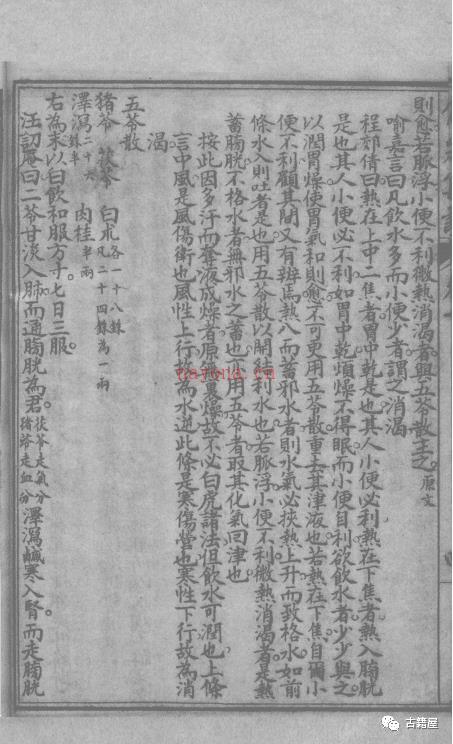 則愈若脈浮小便不利微熱消渴者與五苓散主之原文
喻嘉言曰凡飲水多而小便少者謂之消渴
程郊倩曰熱在上中二焦者胃中乾是也其人小便必利熱在下焦者熱入膀胱
是也其人小便必不利如胃中乾煩燥不得眠而小便自利欲飲水者少少與之
以潤胃燥使胃氣和則愈不可更用五苓散重去其津液也若熱在下焦自爾小
便不利顧其間又有辨焉熱入而蓄邪水者則水氣必挾熱上升而致格水如前
條水入則吐者是也用五苓散以開結利水也若脈浮小便不利微熱消渴者是熱
蓄膀胱不格水者無邪水之蓄也亦用五苓者取其化氣回津也
按此因多汗而奪液成燥者原非裏燥故不必白虎諸法但飲水可潤也上條
言中風是風傷衛也風性上行故為水逆此條是寒傷營也寒性下行故為消
渴
五苓散
豬苓 茯苓 白朮各一十八銖
凡二十四銖為一兩
澤瀉二十六銖半 肉桂半兩
右為末以白飲和服方寸七日三服
汪訒庵曰二苓甘淡入肺而通膀胱為君茯苓走氣分豬苓走血分澤瀉鹹寒入腎而走膀胱
nayona.cn
古籍屋